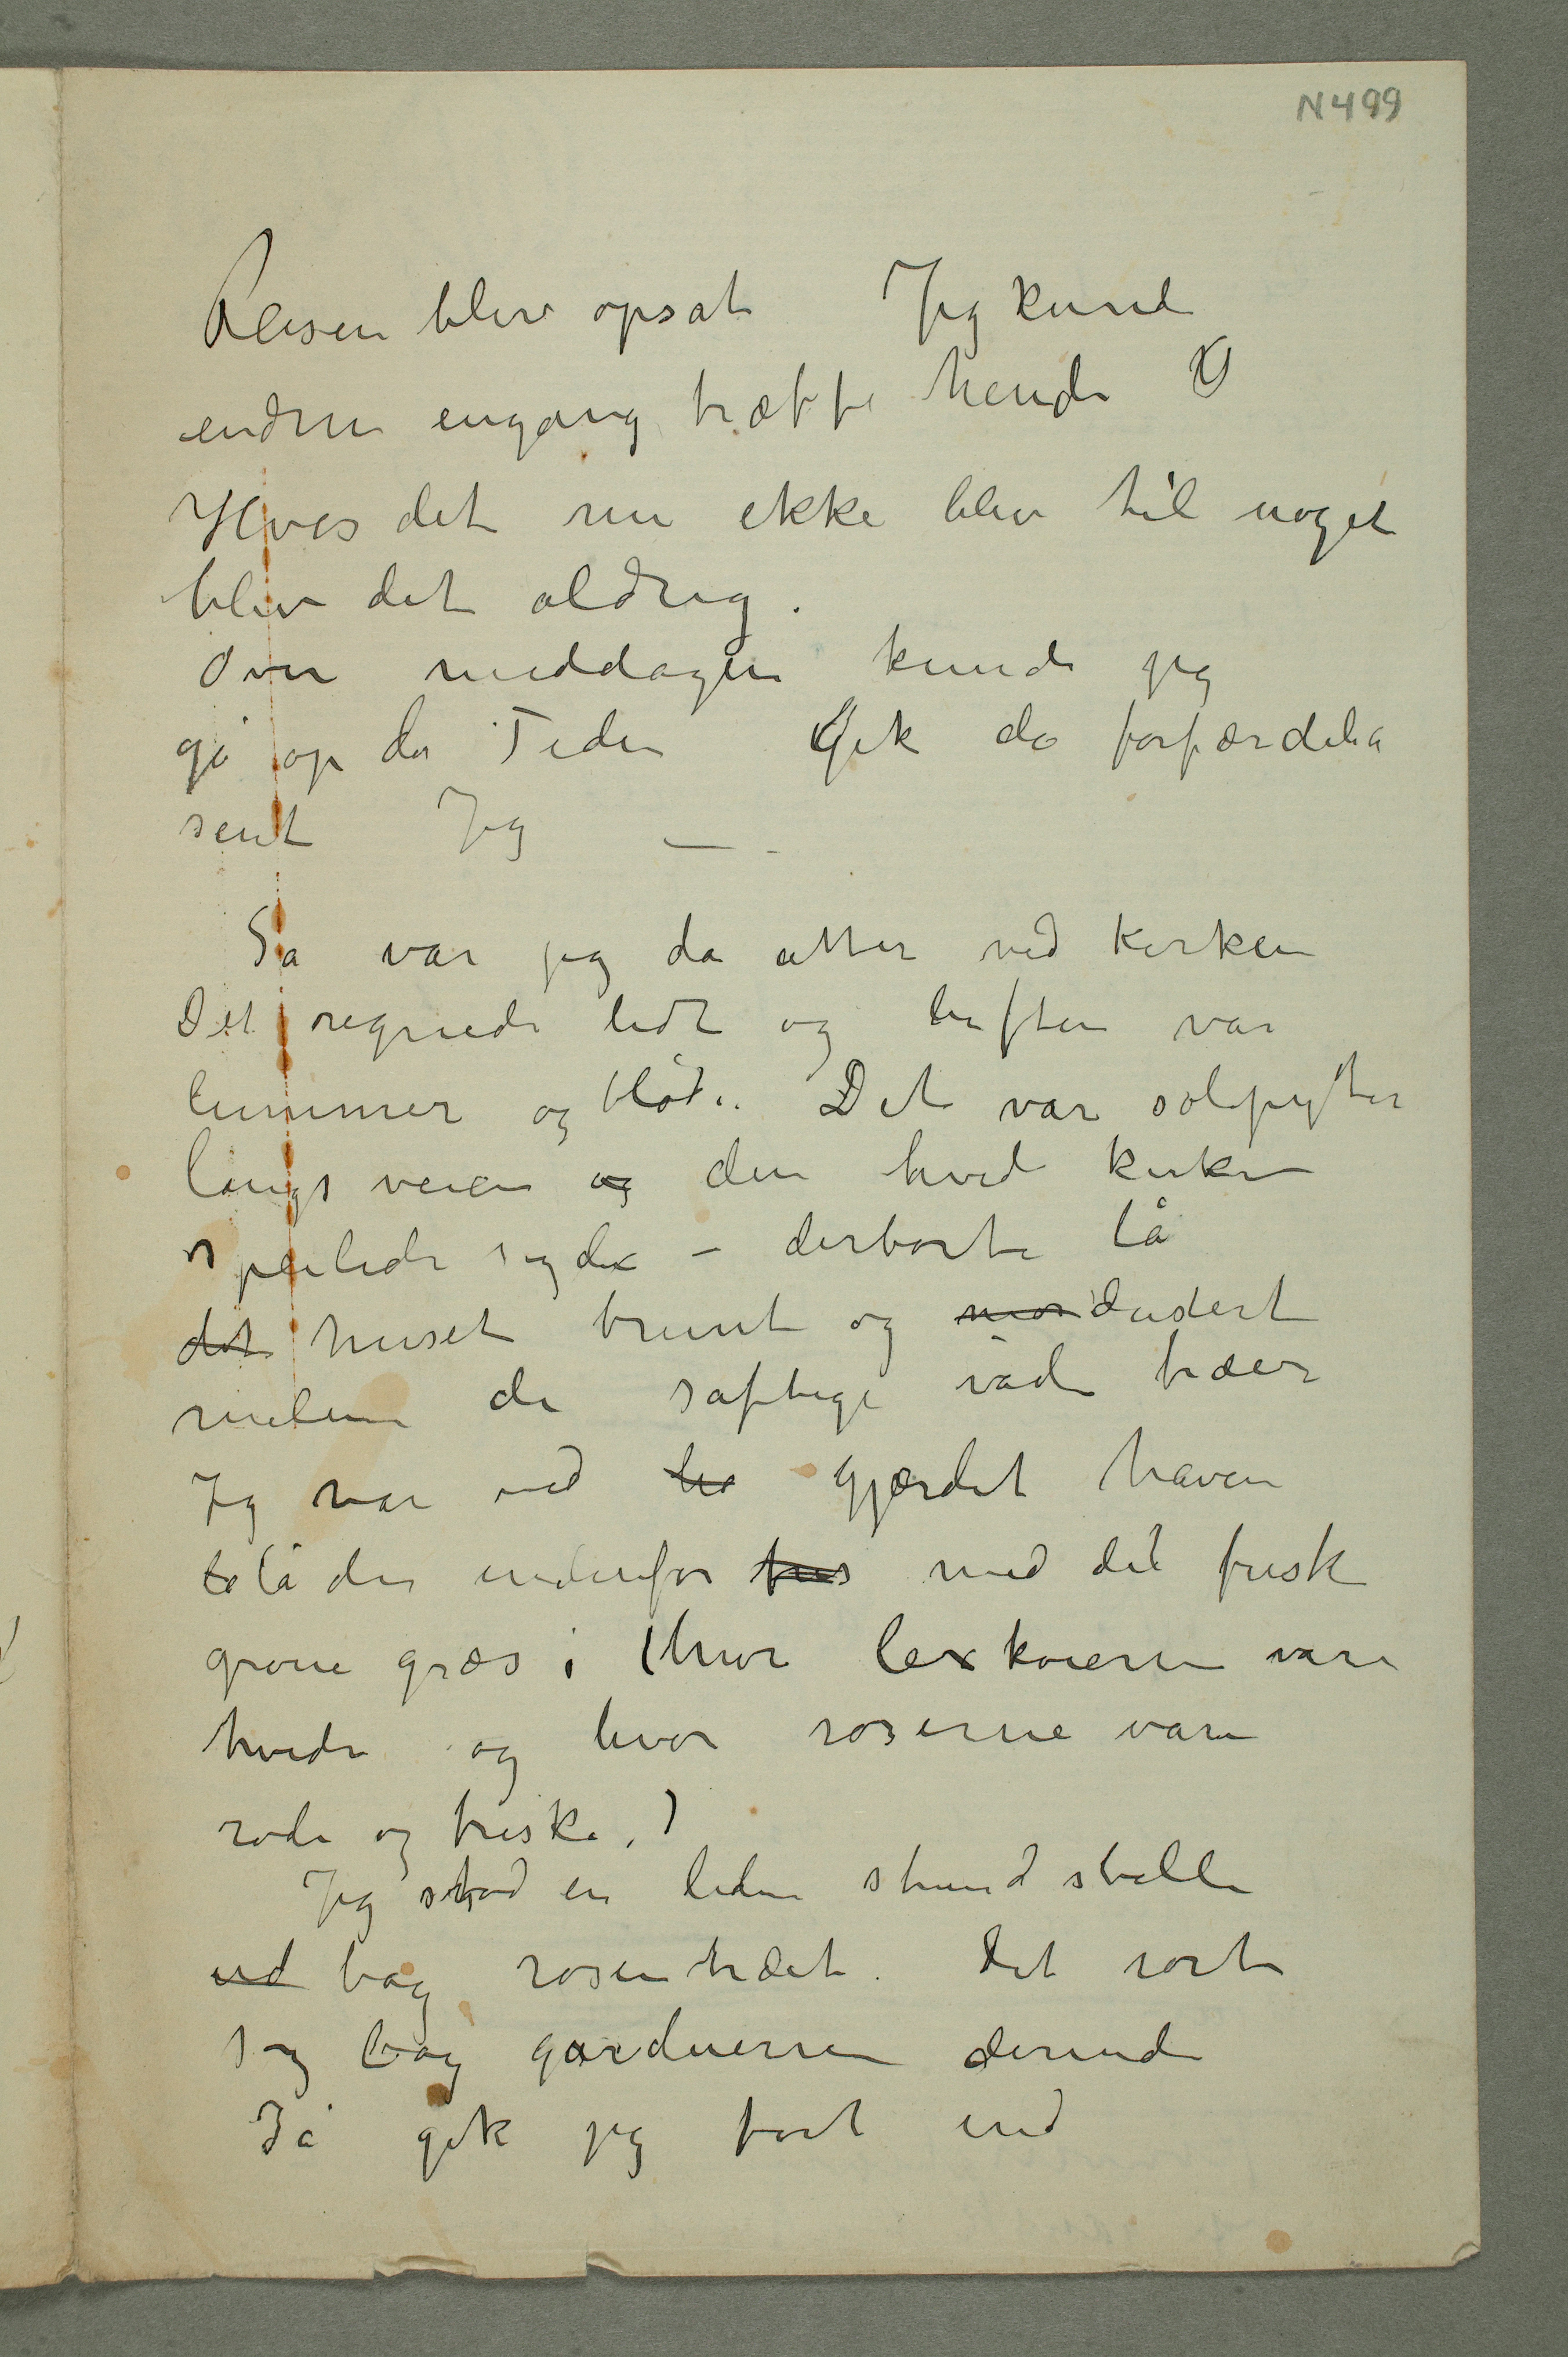 N499
Reisen blev opsat Jeg kunde
endnu engang træffe hende
Hvis det nu ikke blev til noget
blev det aldrig.
Over middagen kunde jeg
gå op da Tiden Gik da forfærdelia
sent Jeg — -
Så var jeg da atter ved kirken
Det regnede lidt og luften var
lummer og blöde. Det var sølepytter
langs veien og den hvide kirken
speilede sig der – derborte lå
det huset brunt og mor dustert
mellem de saftige våde træer
Jeg var ved ha gjærdet haven
la lå der indenfor fris med det frisk
grøne græs i (hvor lexkoierne vare
hvide og hvor roserne vare
røde og friske.)
Jeg stod en liden stund stille
ud bag rosentræet. Det rørte
sig bag gardinerne derinde
Så gik jeg fort ind